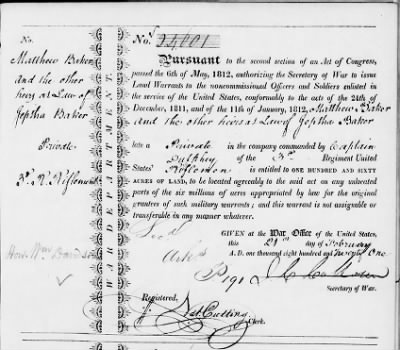 No.
Matthew Baker
and the other
heirs at Law of
Jeptha Baker
Private
Hon. Wm
WAR DEPARTMENT.
No. 24,601
Pursuant to the second section of an Act of Congress,
passed the 6th of May, 1812, authorizing the Secretary of War to issue
Land Warrants to the noncommissioned Officers and Soldiers enlisted in
the service of the United States, conformably to the acts of the 24th of
December, 1811, and of the 11th of January, 1812, Matthew Baker
and the other heirs at Law of Jeptha Baker
late a Private in the company commanded by Captain
of the Regiment United
States' Riflemen is entitled to ONE HUNDRED AND SIXTY
ACRES OF LAND, to be located agreeably to the said act on any unlocated
parts of the six millions of acres appropriated by law for the original
grantees of such military warrants; and this warrant is not assignable
or transferable in any manner whatever.
GIVEN at the War Office of the United States,
this 21st day of February
A. D. one thousand eight hundred and twenty One.
J. C. Calhoun
Secretary of War.
Registered,
Nat. Cutting
Clerk.